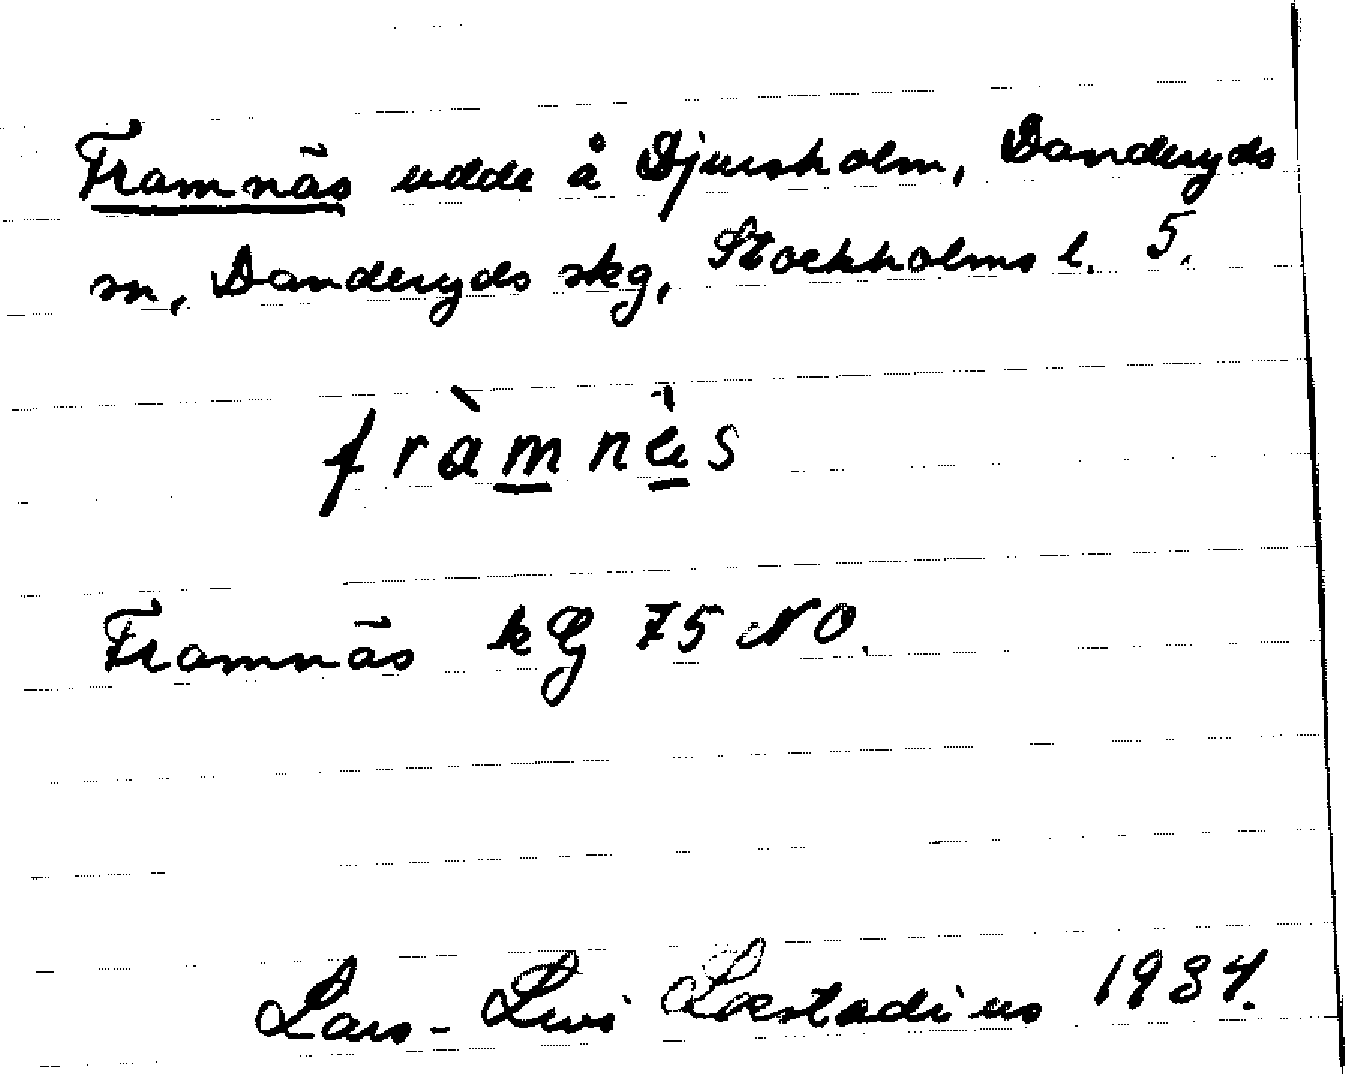 Framnäs udde å Djursholm, Danderyds
sn, Danderyds skg, Stockholms l. 5.
fràmnès
Framnäs kG 75 NO.
Lars-Levi Læstadius 1934.